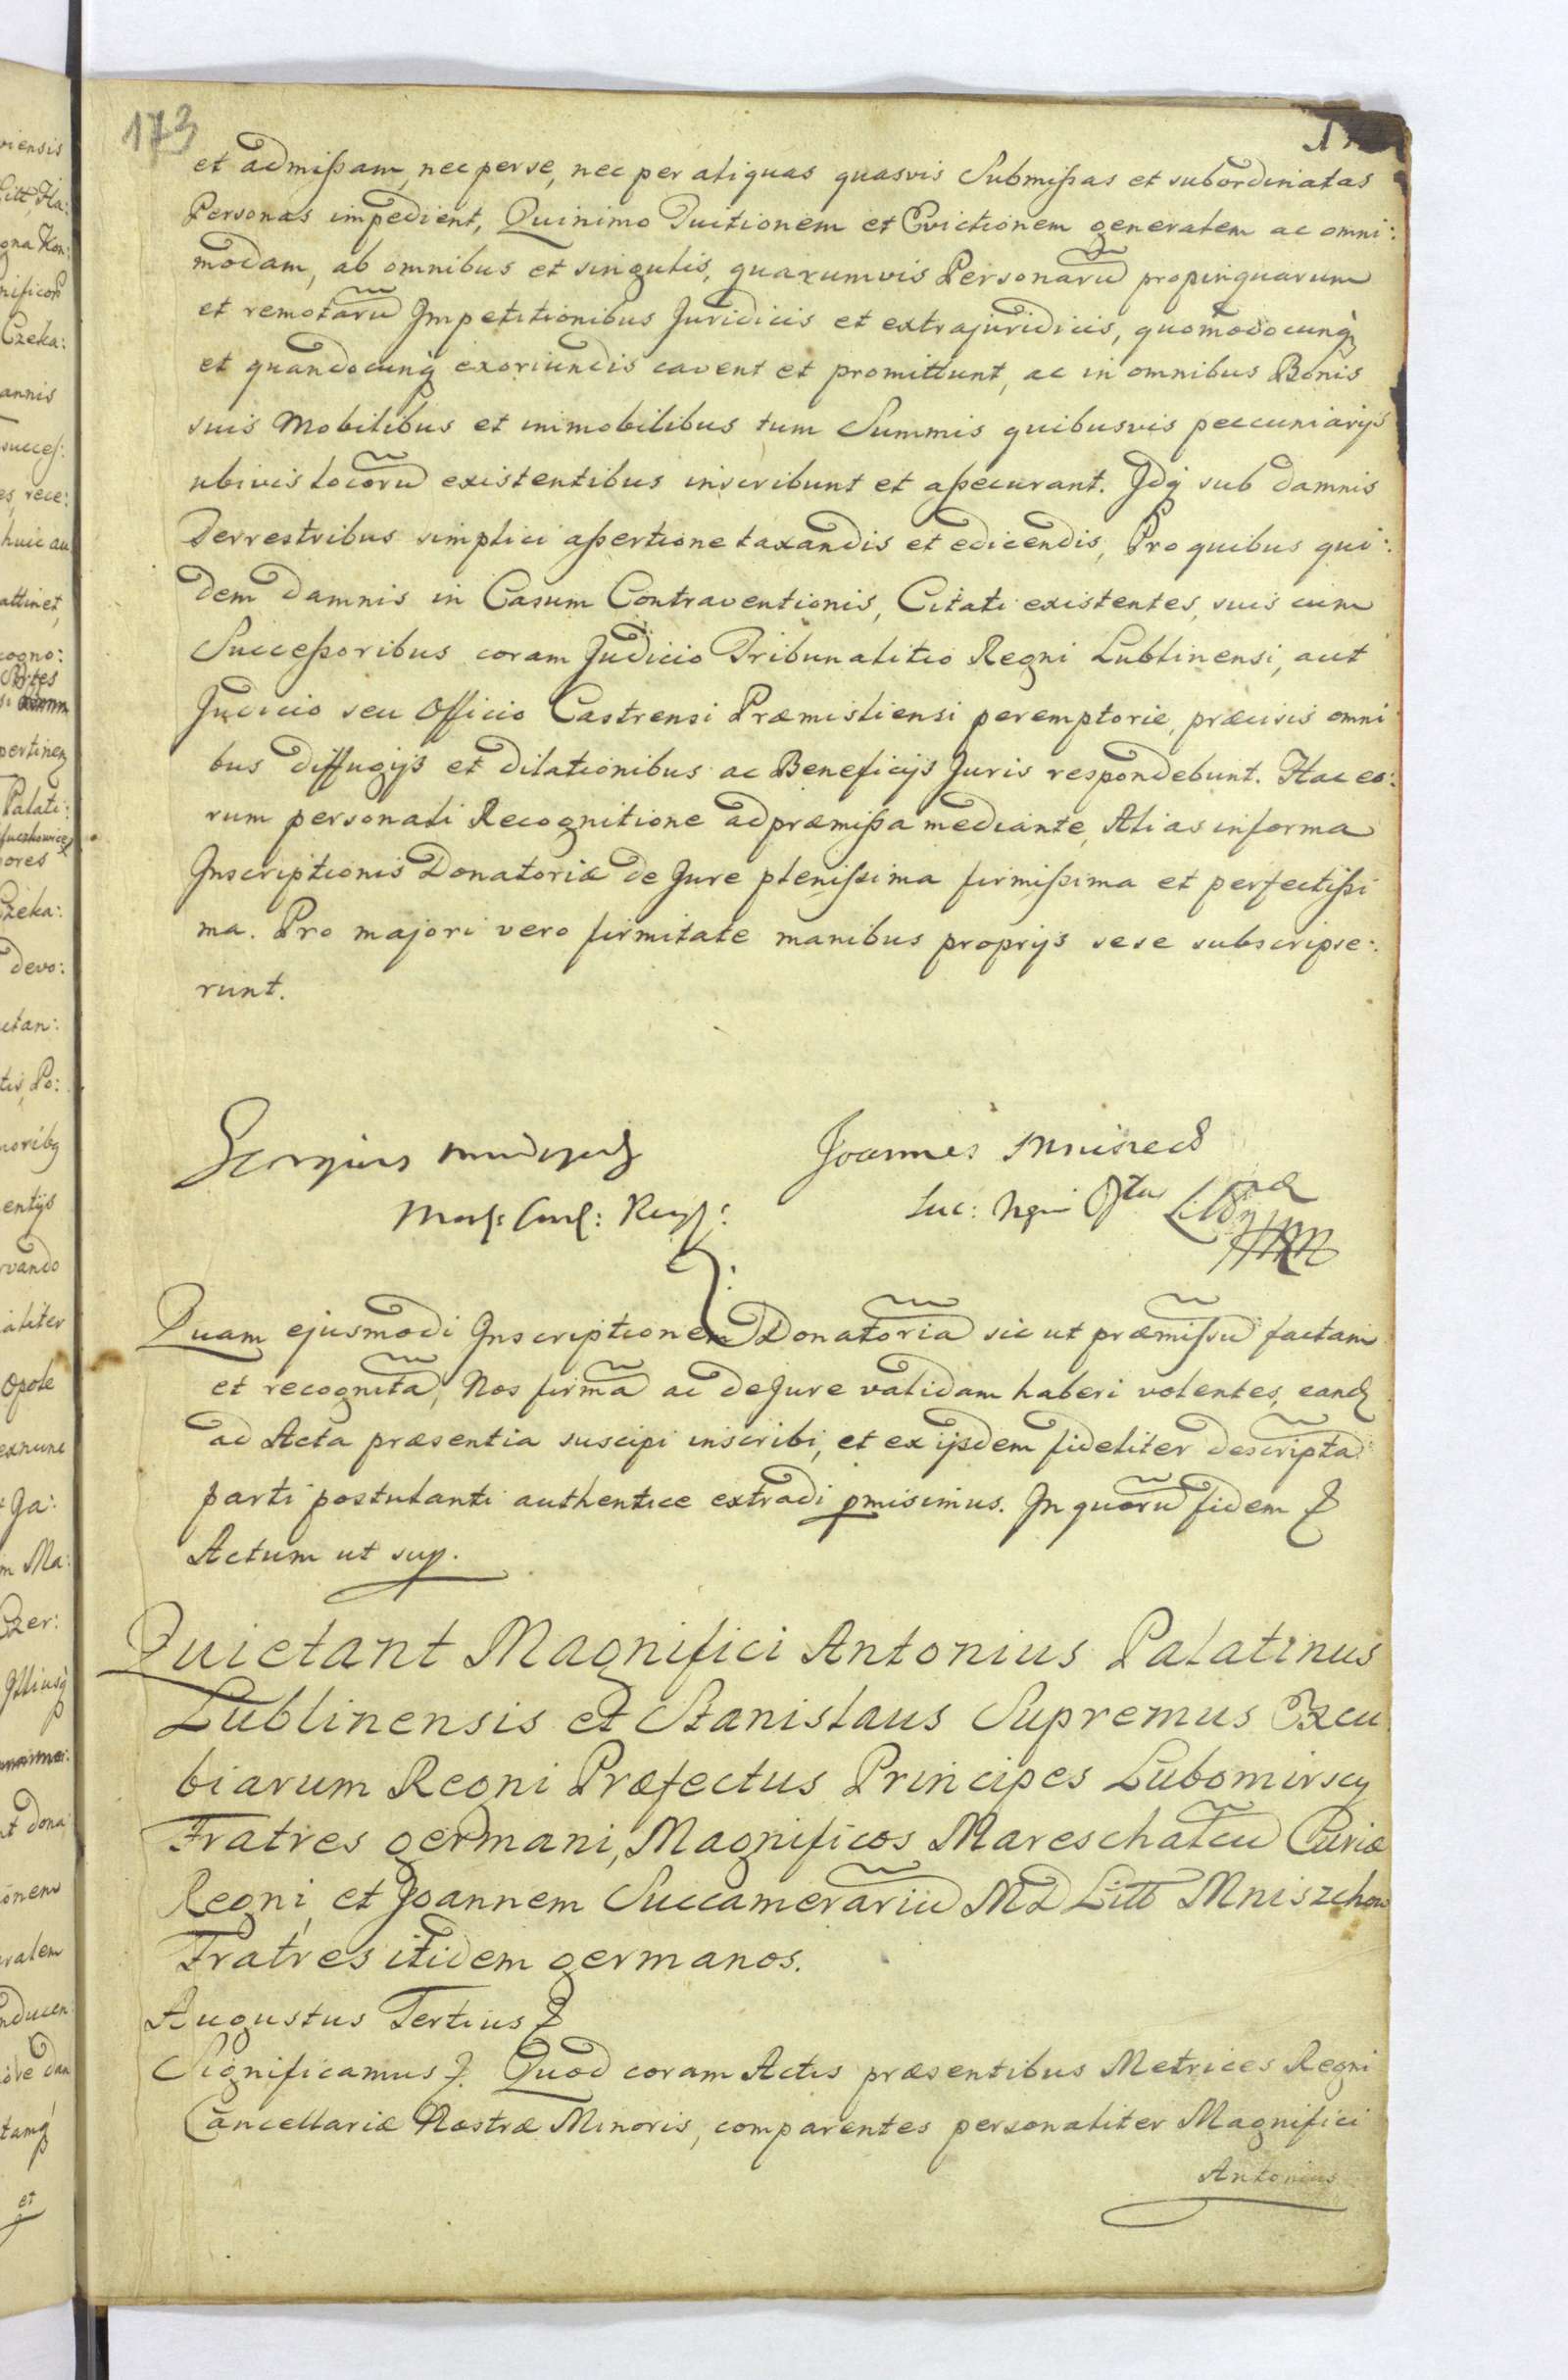 173
et admißam, nec per se, nec per aliquas quasvis Submißas et subordinatas
Personas impedient, Quinimo Tuitionem et Evictionem generalem ac omni:
modam, ab omnibus et singulis, quarumvis Personarũ propinquarum
et remotarũ Impetitionibus Juridicis et extrajuridicis, quomodocunq
et quandocunq exoriundis cavent et promittunt, ac in omnibus Bonis
suis Mobilibus et immobilibus tum Summis quibusvis peccuniarijs
ubivis locorũ existentibus inscribunt et aßecurant. Idq sub damnis
Terrestribus simplici aßertione taxandis et edicendis, Pro quibus qui:
dem damnis in Casum Contraventionis, Citati existentes, suis cum
Succeßoribus coram Judicio Tribunalitio Regni Lublinensi, aut
Judicio seu Officio Castrensi Præmisliensi peremptorie, præcisis omni
bus diffugijs et dilationibus ac Beneficijs Juris respondebunt. Hac eo:
rum personali Recognitione ad præmißa mediante, Alias in forma
Inscriptionis Donatoriæ de Jure plenißima firmißima et perfectißi
ma. Pro majori vero firmitate manibus proprijs sese subscripse:
runt.
Georgius Mniszech Joannes Mniszech
Quam ejusmodi Inscriptionem Donatoriã sic ut præmißũ factam
et recognitã, Nos firmã ac de Jure validam haberi volentes, eand
ad Acta præsentia suscipi inscribi, et ex ijsdem fideliter descriptã
parti postulanti authentice extradi pmisimus. In quorũ fidem
Actum ut sup.
Quietant Magnifici Antonius Palatinus
Lublinensis et Stanislaus Supremus Excu
biarum Regni Præfectus Principes Lubomirscy
Fratres germani, Magnificos Mareschalcũ Curiæ
Regni, et Joannem Succamerariũ MD Litt Mniszchow
Fratres itidem germanos.
Augustus Tertius
Significamus. Quod coram Actis præsentibus Metrices Regni
Cancellariæ Nostræ Minoris, comparentes personaliter Magnifici
Antonius